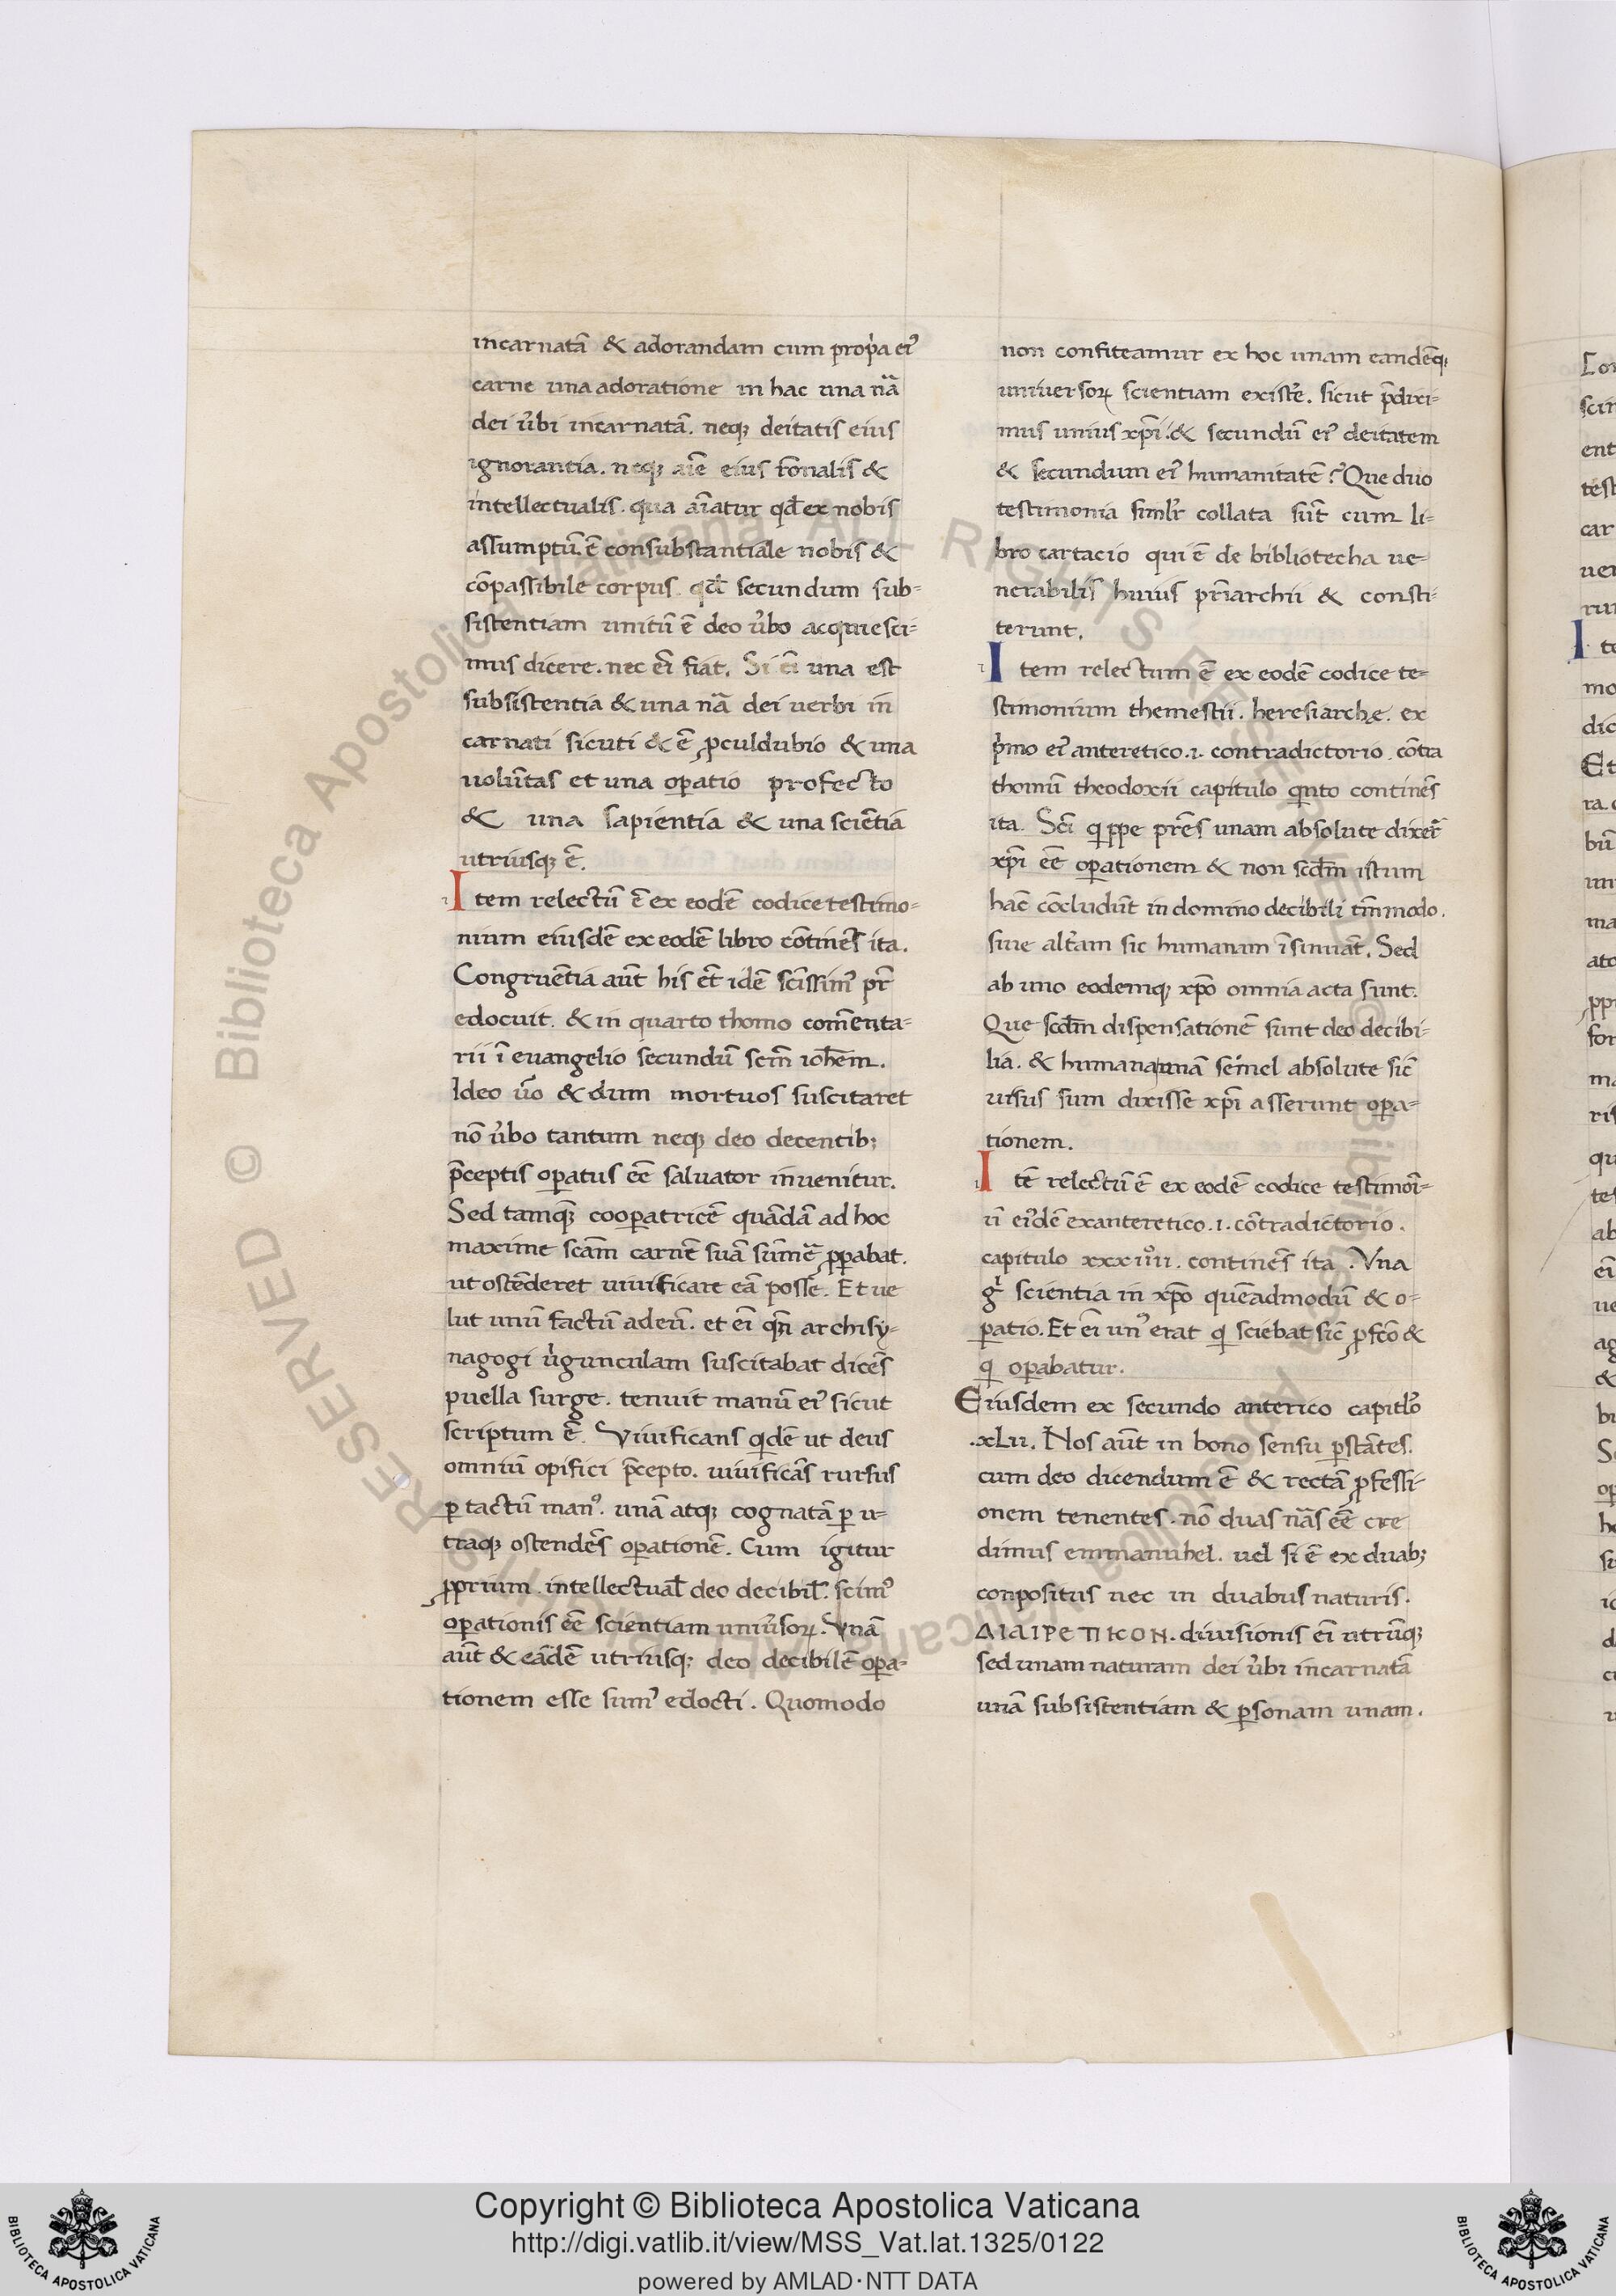 incarnatā & adorandam cum prop̍a ei᾽
carne una adoratione in hac una nā
dei u̍bi incarnatā. neq; deitatis eius
ignorantia. neq; aīe eius r̄onalis &
intellectualis. qua aīatur qd̄ ex nobis
assumptū. ē consubstantiale nobis &
cōpassibile corpus. qd̄ secundum sub=
sistentiam unitū ē deo u̍bo acquiesci=
mus dicere. nec eī fiat. Si eī una est
subsistentia & una nā dei uerbi in
carnati sicuti & ē ꝓculdubio & una
uolūtas et una oꝑatio profecto
& una sapientia & una sciētia
utriusq; ē.
Item relectū ē ex eodē codice testimo=
nium eiusdē ex eodē libro cōtinēs ita.
Congruētia aūt his et̄ idē sc̄issim᾽ pr̄
edocuit. & in quarto thomo com̄enta=
rii ī euangelio secundū scm̄ ioh̄em.
Ideo ūo & dum mortuos suscitaret
nō u̍bo tantum neq; deo decentib;
p̄ceptis oꝑatus eē saluator inuenitur.
Sed tamq̄; cooꝑatricē quādā ad hoc
maxime scām carnē suā sūmē ꝓꝑabat.
ut ostēderet uiuificare eā posse. Et ue
lut unū factū ad eū. et eī qn̄ archisy=
nagogi u̍gunculam suscitabat dicēs
puella surge. tenuit manū ei᾽ sicut
scriptum ē. Viuificans qidē ut deus
omniū opifici p̄cepto. uiuificās rursus
ꝑ tactū man᾽. unā atq; cognatā ꝑ u=
traq; ostendēs oꝑationē. Cum igitur
ꝓprium. intellectual̄ deo decibil̄. scim᾽
oꝑationis eē scientiam uniu̍soꝝ. Vnā
aūt & eādē utriusq; deo decibilē oꝑa=
tionem esse sum᾽ edocti. Quomodo
non confiteamur ex hoc unam eandēq;
uniuersoꝝ scientiam existe̍. sicut p̄dixi=
mus unius xp̄i. & secundū ei᾽ deitatem
& secundum ei᾽ humanitatē? Que duo
testimonia siml̍r collata sūt cum li=
bro cartacio qui ē de bibliotecha ue=
nerabilis huius pr̄iarchii & consti=
terunt.
Item relectum ē ex eodē codice te=
stimonium themestii. heresiarche. ex
p̍mo ei᾽ anteretico .i. contradictorio. cōtra
thomū theodoxii capitulo qnto continēs
ita. Scī qippe pr̄es unam absolute dixer̄
xp̄i eē oꝑationem & non scd̄m istum
hāc cōcludūt in domino decibili tm̄modo.
siue alt̍am sic humanam īsinuāt. Sed
ab uno eodemq; xp̄o omnia acta sunt.
Que scd̄m dispensationē sunt deo decibi=
lia. & humana unā semel absolute sic̄
uisus sum dixisse xp̄i asserunt oꝑa=
tionem.
Itē relectū ē ex eodē codice testimoī=
ū ei᾽dē ex anteretico .i. cōtradictorio.
capitulo xxxiiii. continēs ita. Vna
g̍ scientia in xp̄o quēadmodū & o=
ꝑatio. Et eī un᾽ erat q sciebat sic̄ ꝓfc̄o &
q oꝑabatur.
Eiusdem ex secundo anterico capitl̍o
.xLii. Nos aūt in bono sensu ꝑstātes.
cum deo dicendum ē & rectā ꝓfessi=
onem tenentes. nō duas nās eē cre
dimus emmanuhel. uel si ē ex duab;
conpositus nec in duabus naturis.
ΔΙΑΙΡΕΤΙΚΟΝ. diuisionis eī utrūq;
sed unam naturam dei u̍bi incarnatā
unā subsistentiam & ꝑsonam unam.
Copyright © Biblioteca Apostolica Vaticana
http://digi.vatlib.it/view/MSS_Vat.lat.1325/0122
powered by AMLAD·NTT DATA